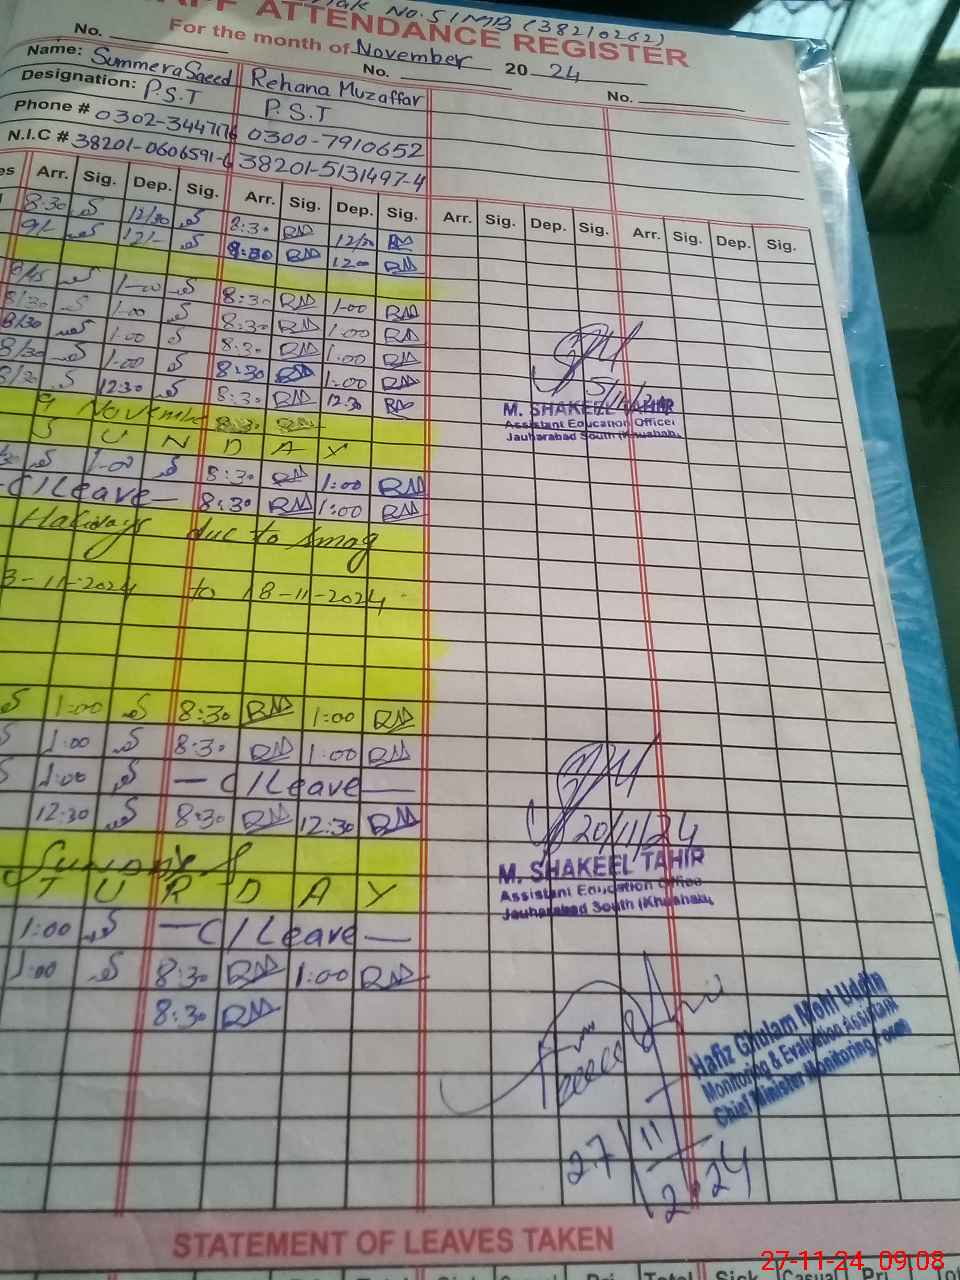 No. 51MB (38210262)
STAFF ATTENDANCE REGISTER
For the month of November 2024
No. No. No.
Name: Summera Saeed Rehana Muzaffar
Designation: P.S.T P.S.T
Phone # 0302-344 0300-7910652
N.I.C # 38201-0606591-6 38201-5131497-4
Arr. Sig. Dep. Sig. Arr. Sig. Dep. Sig. Arr. Sig. Dep. Sig. Arr. Sig. Dep. Sig.
8:30 12/30 8:30 RM 12/30 RM
9/- 12/- 8:30 RM 12:00 RM
8/45 1-00 8:30 RM 1-00 RM
8/30 1-00 8:30 RM 1:00 RM
8/30 1:00 8:30 RM 1:00 RM
8/30 1:00 8:30 RM 1:00 RM
8/30 12:30 8:30 RM 12:30 RM
9 November 8:30 RM
S U N D A Y
1-00 8:30 RM 1:00 RM
C/Leave 8:30 RM 1:00 RM
Holidays due to smog
3-11-2024 to 18-11-2024
1:00 8:30 RM 1:00 RM
1:00 8:30 RM 1:00 RM
1:00 C/Leave
12:30 8:30 RM 12:30 RM
T U R D A Y
1:00 C/Leave
1:00 8:30 RM 1:00 RM
8:30 RM
5/11/24
M. SHAKEEL TAHIR
Assistant Education Officer
Jauharabad South (Khushab)
20/11/24
M. SHAKEEL TAHIR
Assistant Education Office
Jauharabad South (Khushab)
Hafiz Ghulam Mohi Uddin
Monitoring & Evaluation Assistant
Chief Minister Monitoring Force
27/11/2024
STATEMENT OF LEAVES TAKEN
Total Sick Casual
27-11-24 09:08